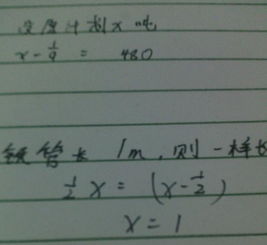 设原计划x吨
x - 1/9 = 480
铁管长 1m，则一样长
1/2 x = (x - 1/2)
x = 1